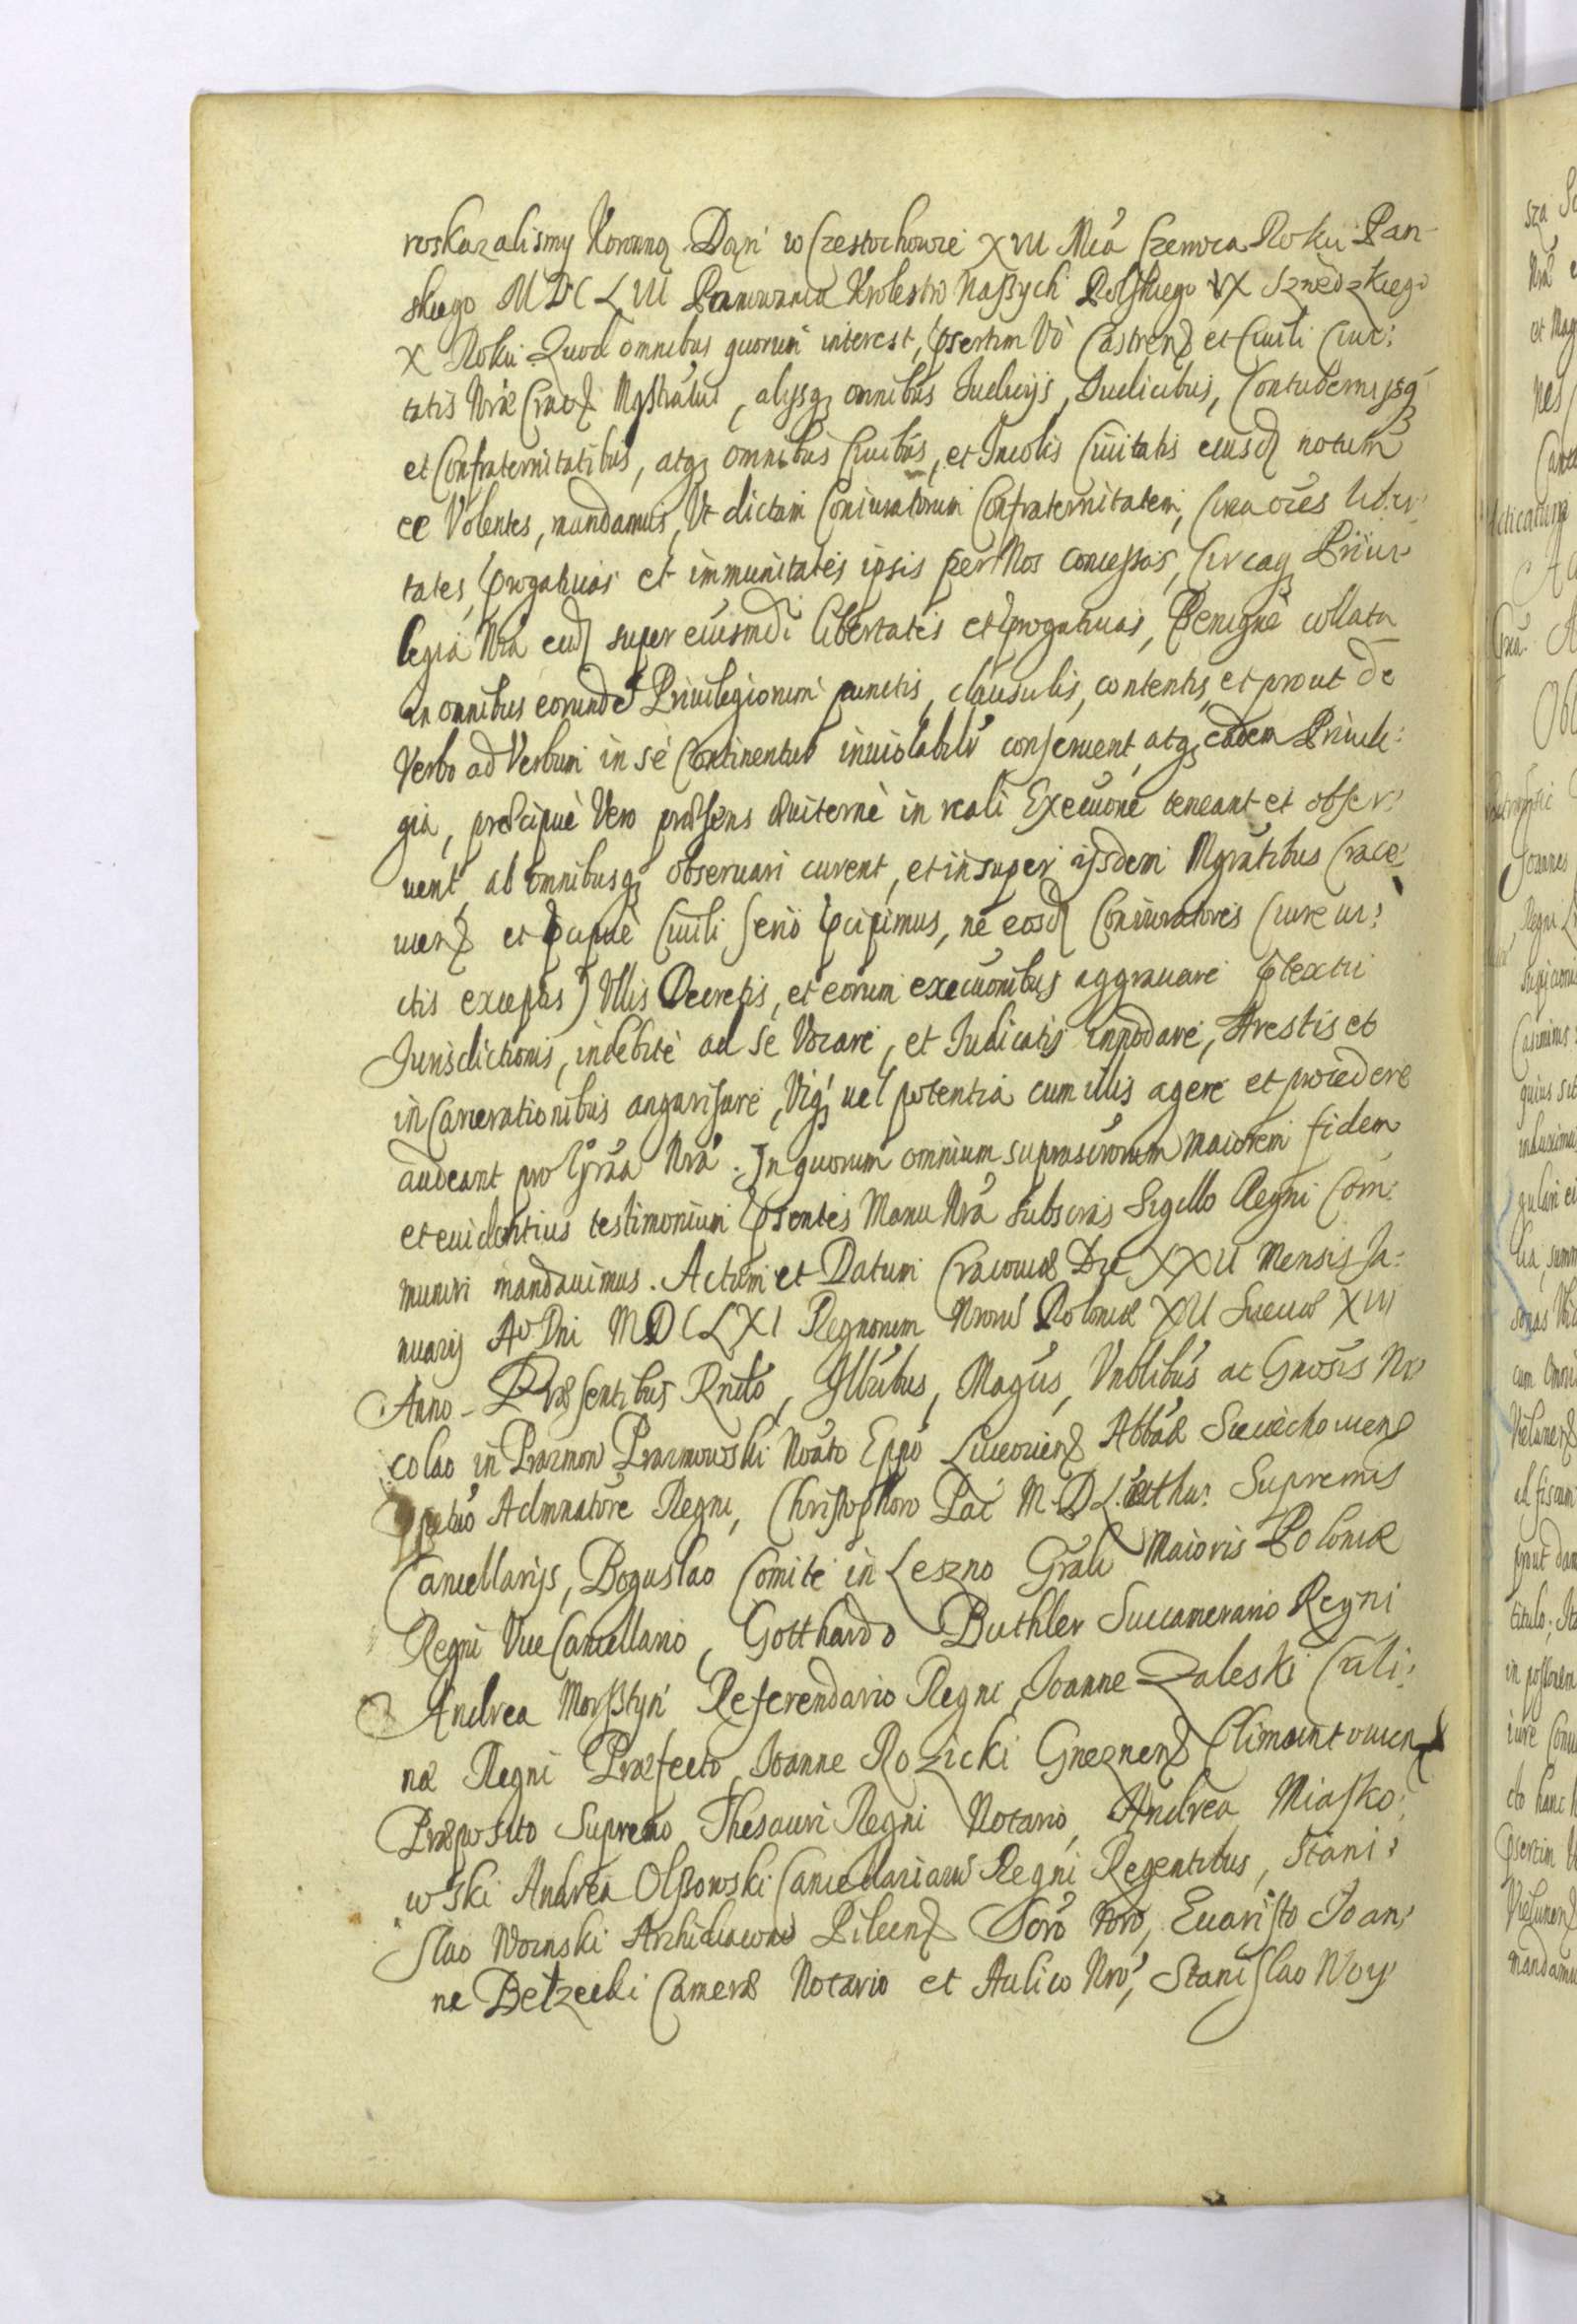 roskazalismy Koronną Dan w Częstochowie XVII Mca Czerwca Roku Pan-
skiego MDCLVII Panowania Krolestw Naßych Polskiego IX Szwedzkiego
X Roku. Quod omnibus quorum interest, psertim Vo Castren et Ciuili Ciui:
tatis Nræ Crac Mgstratui, alijsq omnibus Iudicijs, Iudicibus, Contubernijsq
et Confraternitatibus, atq omnibus Ciuibus, et Incolis Ciuitatis eiusd notum
ee Volentes, mandamus, Vt dictam Coniuratorum Confraternitatem, Circa oes liber
tates, progatiuas et immunitates ipsis per Nos concessas, Circaq Priui
legia Nra eid super eiusmdi libertates et progatiuas, Benigne collata
in omnibus eorunde Priuilegiorum punctis, clausulis, contentis, et prout de
Verbo ad Verbum in se Continentur inuiolabilr conseruent, atq eadem Priuile:
gia, præcipuè Vero præsens æuiternè in reali Execuone teneant et obser:
uent, ab omnibusq obseruari curent, et insuper ijsdem Mgratibus Craco:
uien et pcipuè Ciuili serio pcipimus, ne eosd Coniuratores (iure ui:
ctis exceptis) Vllis Decretis, et eorum execuonibus aggrauare ptextu
Jurisdictionis, indebitè ad se Vocare, et Iudicatis innodare, Arestis et
inCarcerationibus angarisare, Viq uel potentia cum illis agere et procedere
audeant pro Graa Nra. In quorum omnium suprascrorum maiorem fidem
et euidentius testimonium psentes Manu Nra subscras Sigillo Regni Com:
muniri mandauimus. Actum et Datum Cracouiæ Die XXII Mensis Ja:
nuarij Ao Dni MDCLXI Regnorum Nrorum Poloniæ XII Sueciæ XIII
Anno. Præsentibus Rndo, Illribus, Magcis, Vnblibus ac Gnosis Ni
colao in Prazmow Prazmowski Noato Eppo Luceorien Abbae Sieciechouien
ppetuo Admnatore Regni, Christophoro Pac M. D. Lithu: Supremis
Cancellarijs, Boguslao Comite in Leszno Grali Maioris Poloniæ
Regni Vice Cancellario, Gotthardo Buthler Succamerario Regni
Andrea Morßtyn Referendario Regni, Joanne Zaleski Culi:
næ Regni Præfecto, Joanne Rozicki Gneznen Climuntouien
Præposito Supremo Thesauri Regni Notario, Andrea Miasko:
wski Andrea Olßowski Cancellariarum Regni Regentibus, Stani:
slao Woinski Archidiacono Pilcen Scro Nro, Euaristo Joan:
ne Betzecki Cameræ Notario et Aulico Nro, Stanislao Woy